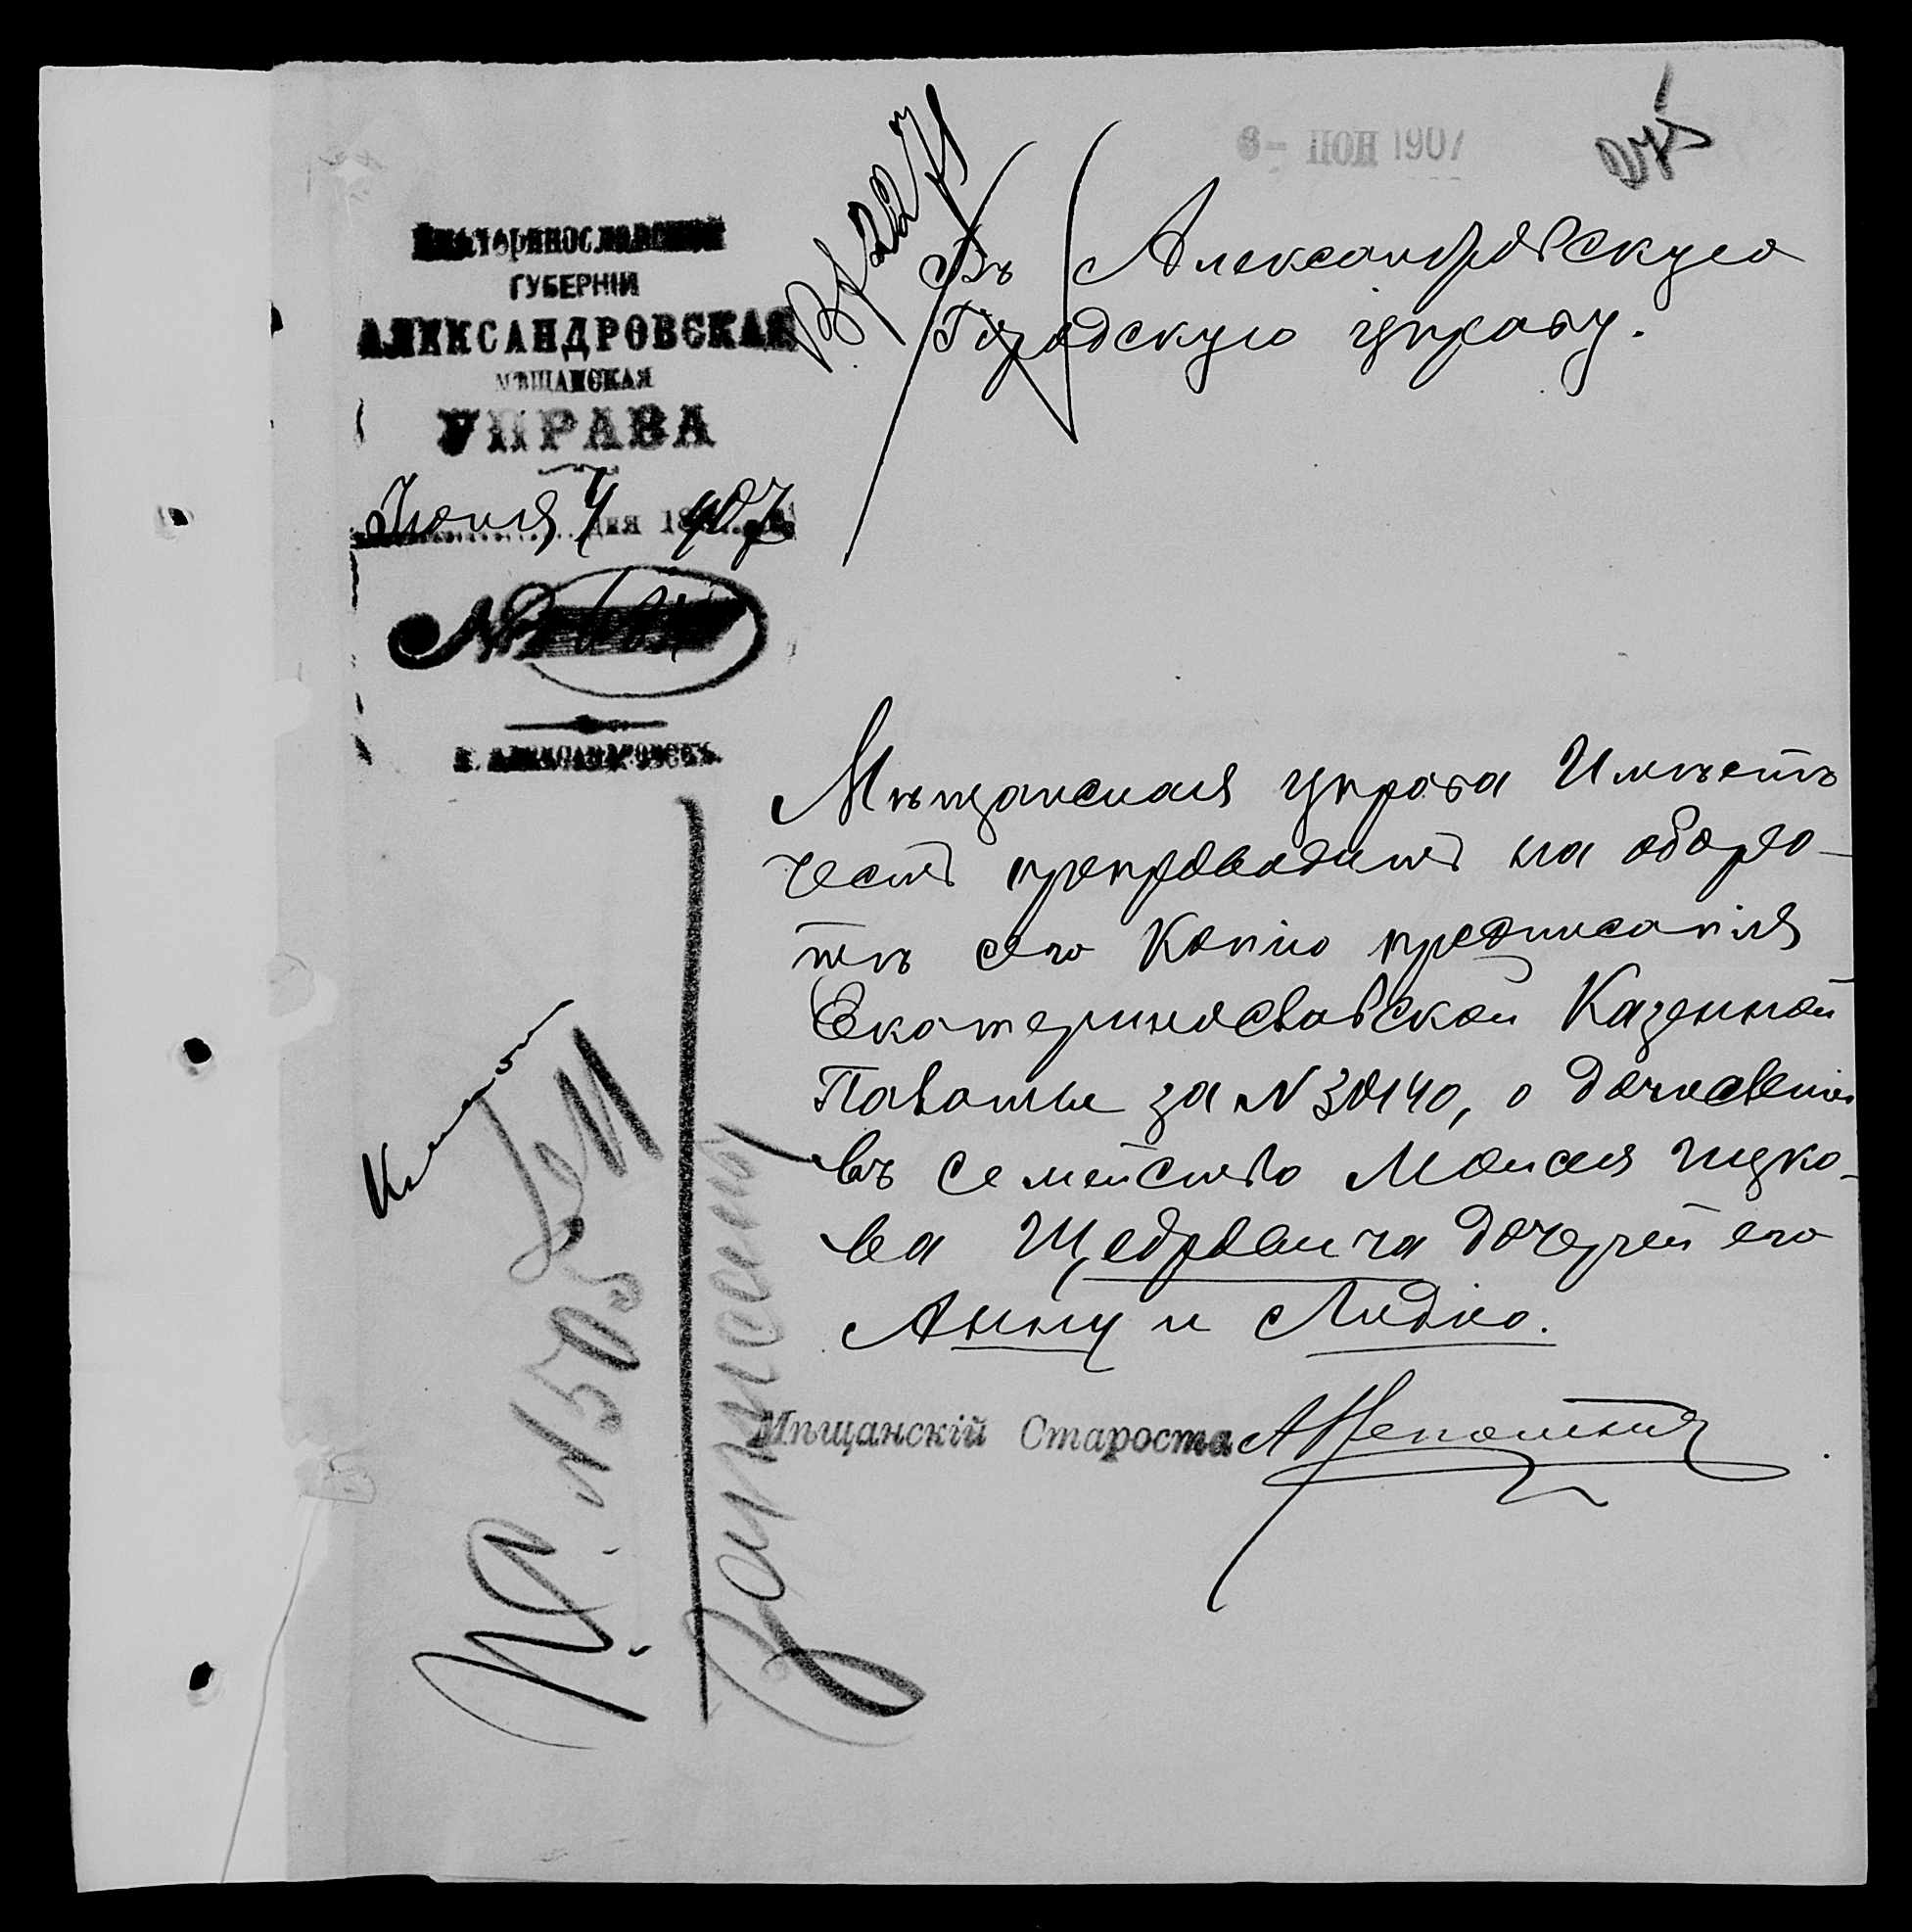 6- ІЮН 1907
Екатеринославской
ГУБЕРНІИ
АЛЕКСАНДРОВСКАЯ
МѢЩАНСКАЯ
УПРАВА
Іюня 4 дня 1907
№
Г. АЛЕКСАНДРОВСКЪ.
Въ Александровскую
Городскую управу.
Мѣщанская управа Имѣетъ
честь препроводить на оборо-
тѣ сего Копію предписанія
Екатеринославской Казенной
Палаты за N 30140, о дочисленіи
въ семейство Моисея Ицко-
ва Щедровича дочерей его
Анну и Лидію.
Мѣщанскій Староста АНепомня
N 505
Записаны